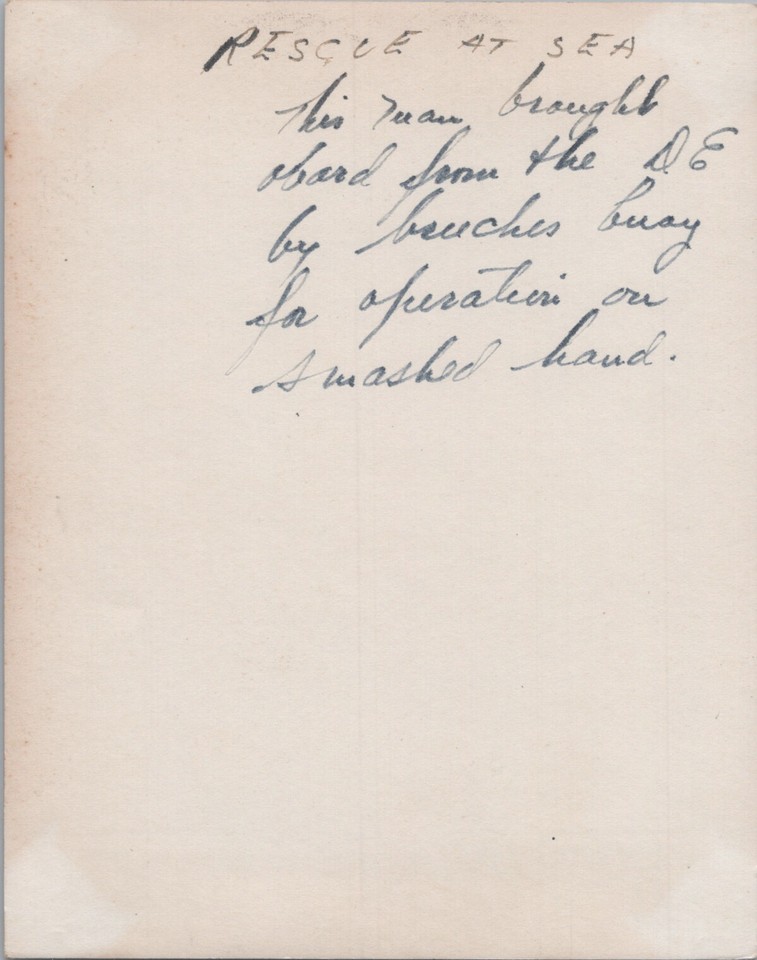 RESCUE AT SEA
This man brought
abord from the D E
by breeches buoy
for operation on
smashed hand.